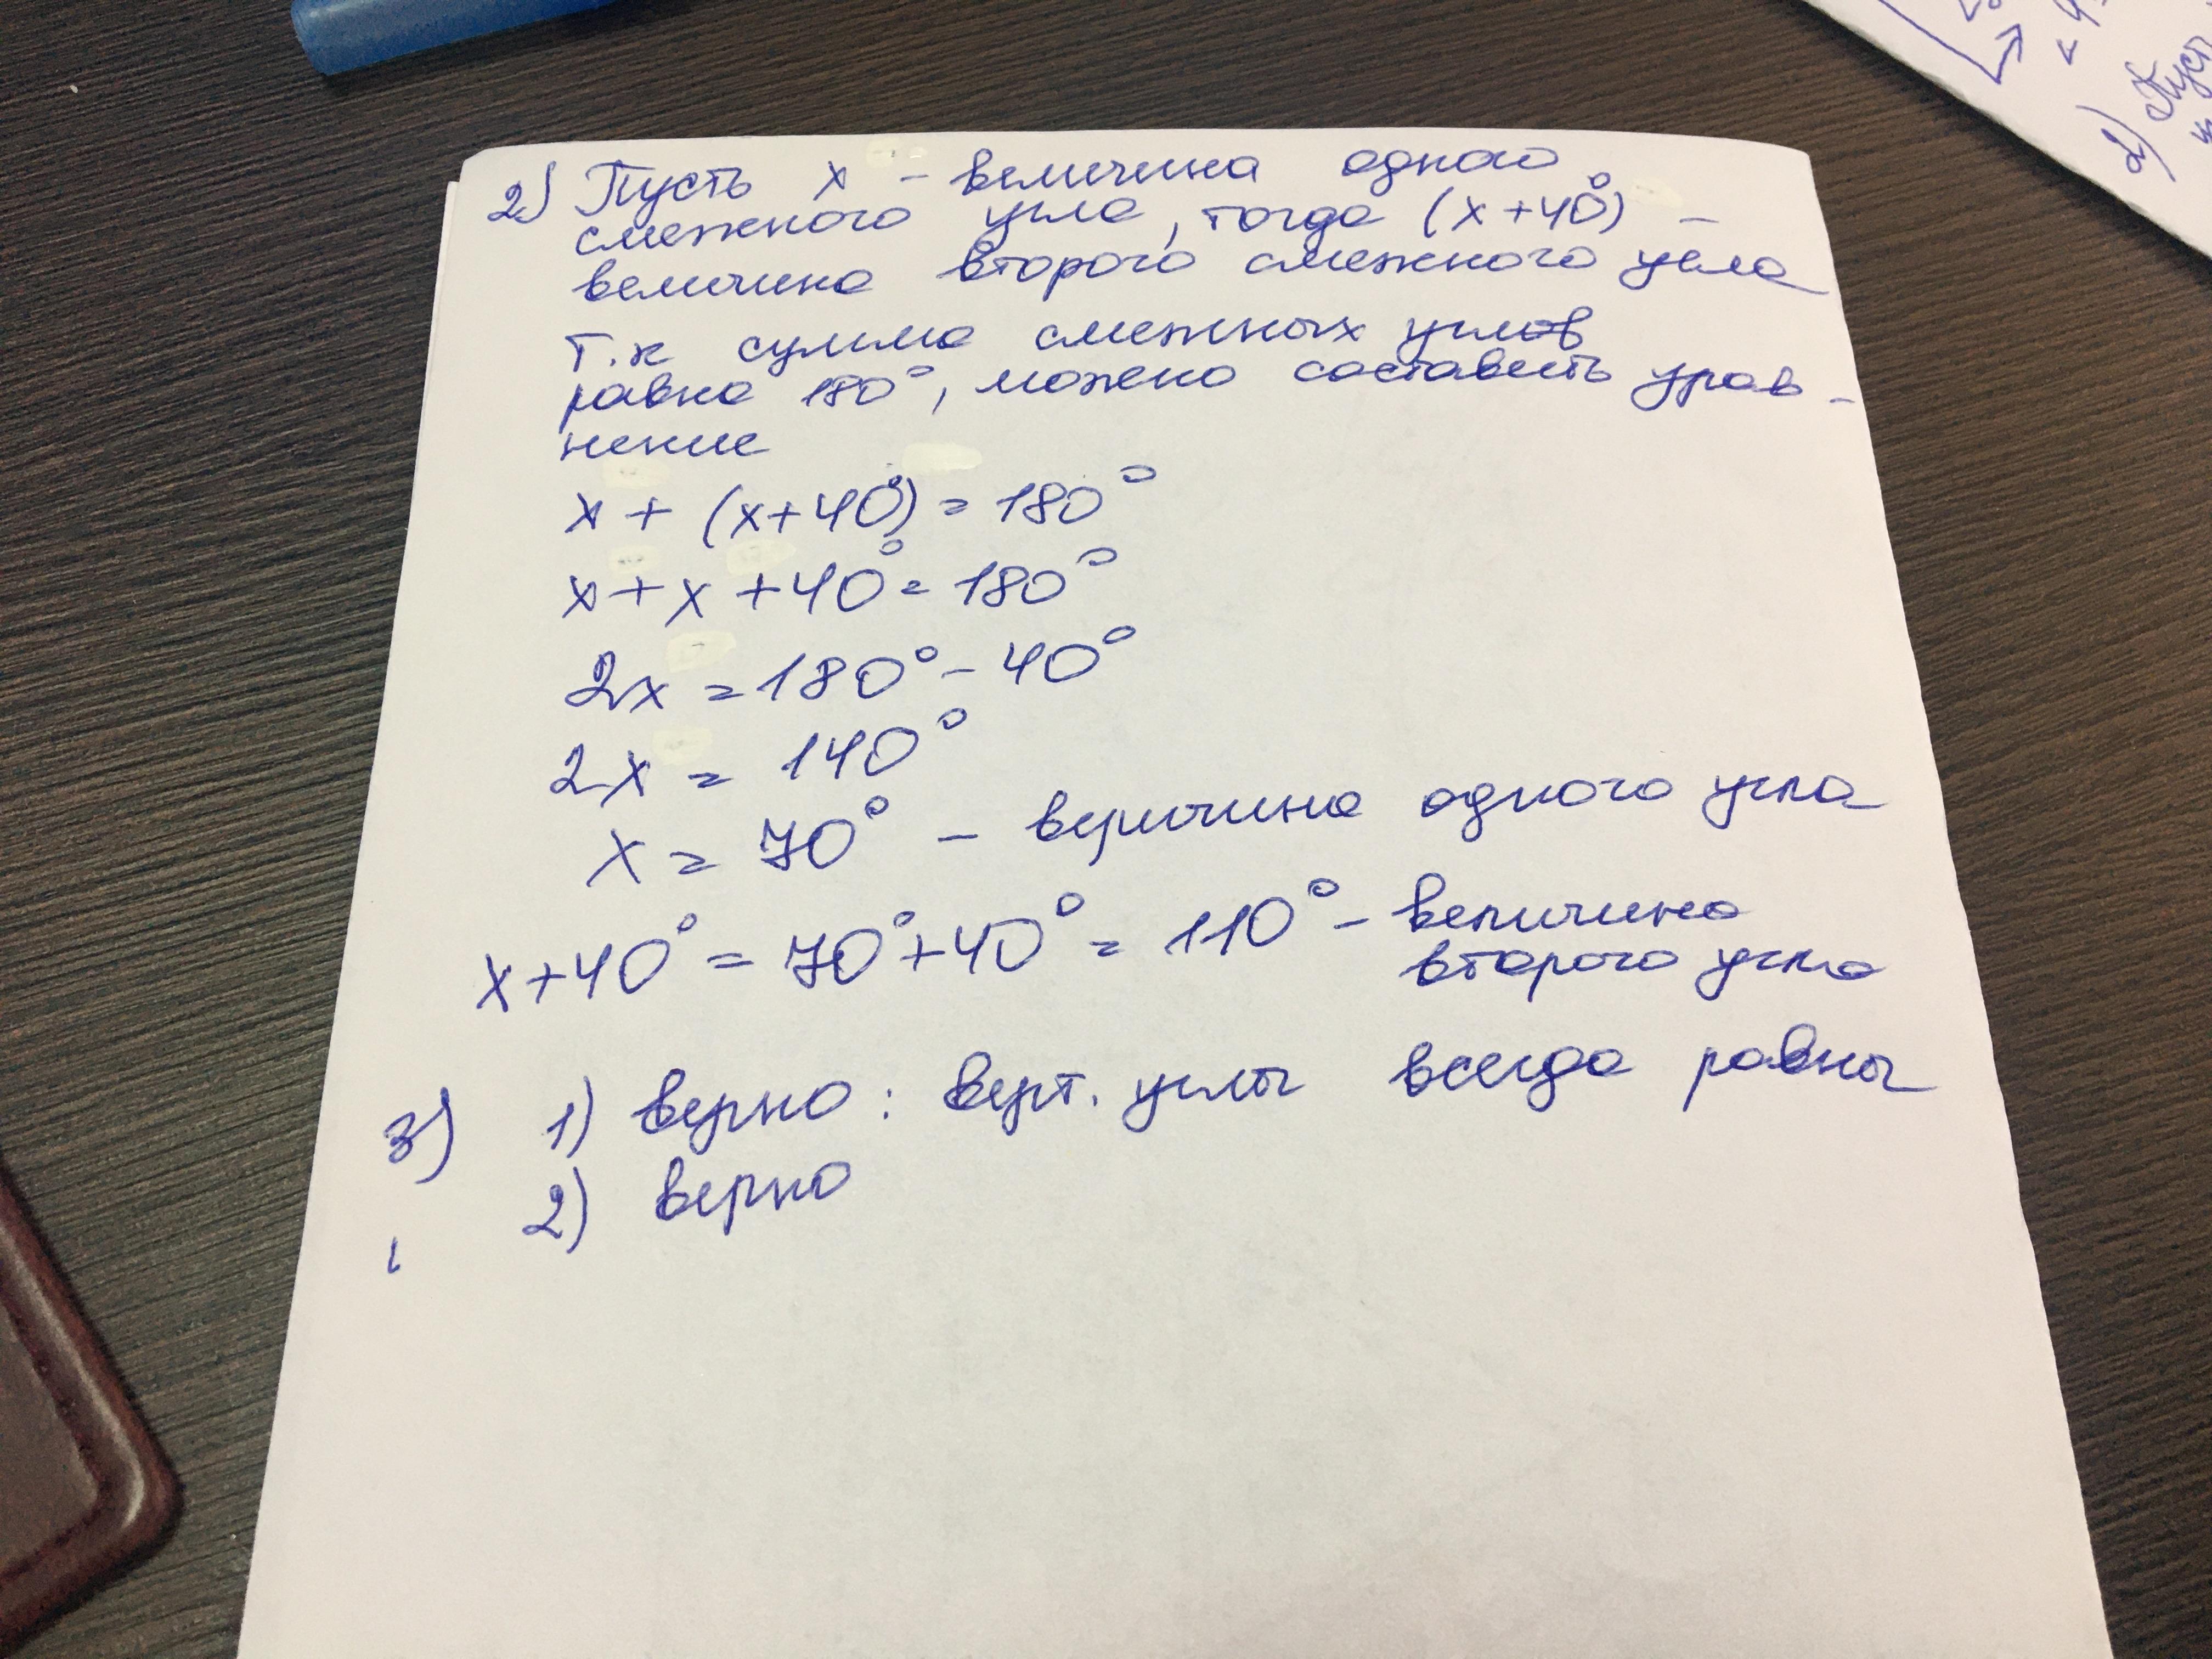 2) Пусть x - величина одного
смежного угла, тогда (x+40°) -
величина второго смежного угла
Т.к сумма смежных углов
равна 180°, можно составить урав-
нение
x + (x+40°) = 180°
x + x + 40° = 180°
2x = 180° - 40°
2x = 140°
x = 70° - величина одного угла
x+40° = 70°+40° = 110° - величина
второго угла
3) 1) верно: верт. углы всегда равны
2) верно
2) Пуст